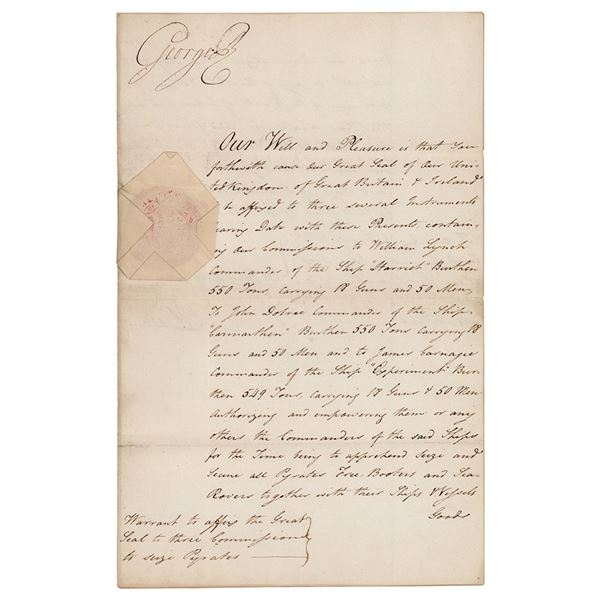 George R
Our Will and Pleasure is that You
forthwith cause our Great Seal of Our Uni-
ted Kingdom of Great Britain & Ireland
to be affixed to three several Instruments
bearing Date with these Presents, contain-
ing Our Commissions to William Lynch
Commander of the Ship "Harriet" Burthen
550 Tons, Carrying 18 Guns and 50 Men
To John Dobree Commander of the Ship
"Carmarthen" Burthen 550 Tons Carrying 18
Guns and 50 Men and to James Carnagie
Commander of the Ship "Experiment" Bur-
then 549 Tons, Carrying 18 Guns & 50 Men
Authorizing and empowering them or any
others the Commanders of the said Ships
for the Time being to apprehend seize and
secure all Pyrates Free Booters and Sea
Rovers together with their Ships & Vessels
Goods
Warrant to affix the Great
Seal to three Commissions
to seize Pyrates